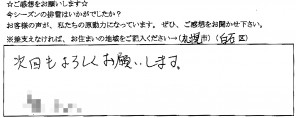 ☆ご感想をお願いします☆
今シーズンの排雪はいかがでしたか?
お客様の声が、私たちの原動力になっています。ぜひ、ご感想をお聞かせ下さい。
※差支えなければ、お住まいの地域をご記入ください→(札幌市)(白石区)
次回もよろしくお願いします。